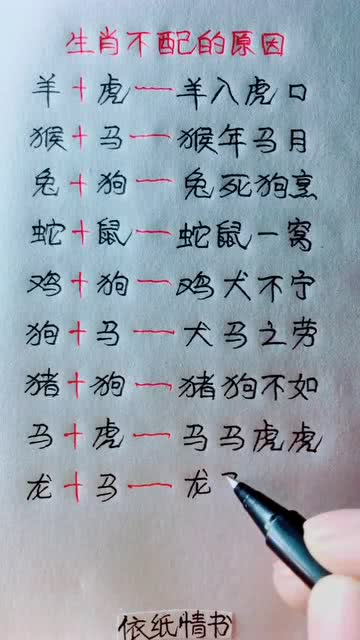 生肖不配的原因
羊+虎一羊入虎口
猴+马一猴年马月
兔+狗一兔死狗烹
蛇+鼠一蛇鼠一窝
鸡+狗一鸡犬不宁
狗+马一犬马之劳
猪+狗一猪狗不如
马+虎一马马虎虎
龙+马一龙
依纸情书